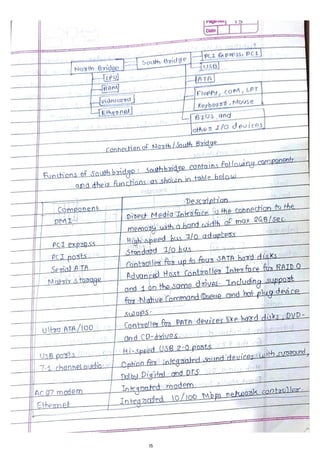 Page No. 15
Date
North Bridge
South Bridge
PCI Express, PCI
USB
CPU
ATA
RAM
Floppy, COM, LPT
Videocard
Keyboard, Mouse
Ethernet
BIOS and
other I/O devices
Connection of North / South Bridge
Functions of South bridge : Southbridge contains following component
and their functions as shown in table below
Component
Description
DMI
Direct Media Interface is the connection to the
memory with a band width of max 2GB/sec
PCI express
High speed bus I/O adapters
PCI ports
Standard I/O bus
Serial ATA
Controller for up to four SATA hard disks
Matrix storage
Advanced Host Controller Interface for RAID 0
and 1 on the same drives. Including support
for Native Command Queue and hot plug device
swaps.
Ultra ATA/100
Controller for PATA devices like hard disks, DVD-
and CD-drives
USB ports
Hi-speed USB 2.0 ports
7.1 channel audio
Option for integrated sound devices with surround,
Dolby Digital and DTS
AC 97 modem
Integrated modem
Ethernet
Integrated 10/100 Mbps network controller
15